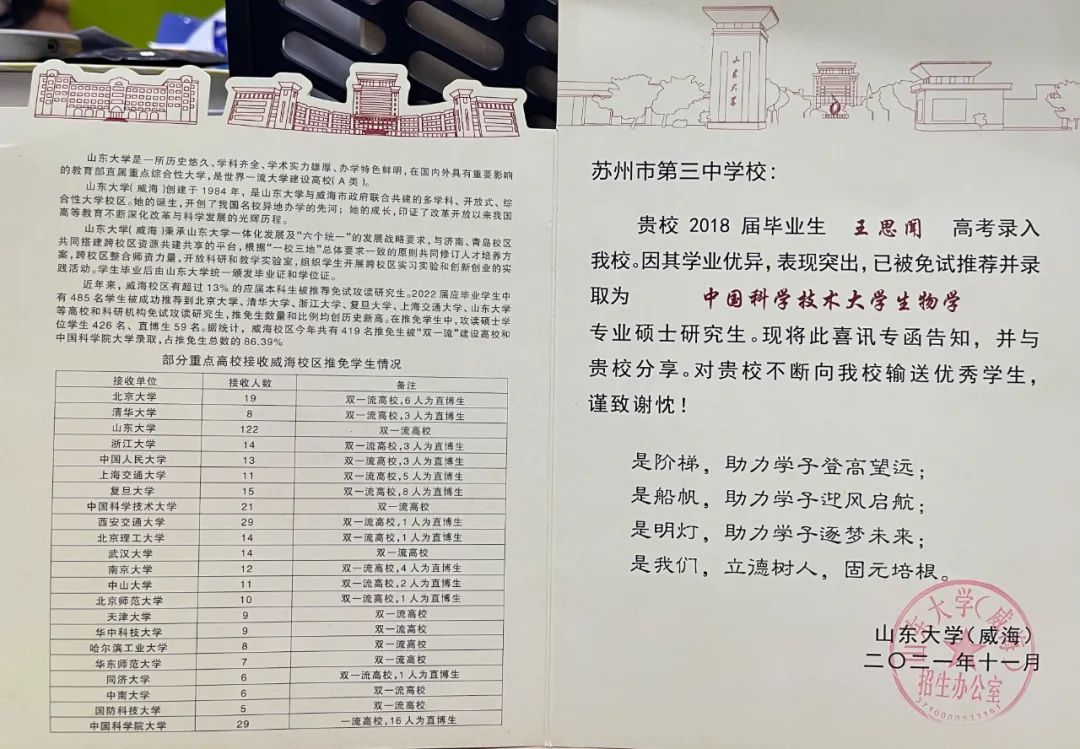 山东大学是一所历史悠久、学科齐全、学术实力雄厚、办学特色鲜明，在国内外具有重要影响
的教育部直属重点综合性大学，是世界一流大学建设高校（A 类）。
山东大学（威海）创建于 1984 年，是山东大学与威海市政府联合共建的多学科、开放式、综
合性大学校区。她的诞生，开创了我国名校异地办学的先河；她的成长，印证了改革开放以来我国
高等教育不断深化改革与科学发展的光辉历程。
山东大学（威海）秉承山东大学一体化发展及“六个统一”的发展战略要求，与济南、青岛校区
共同搭建跨校区资源共建共享的平台，根据“一校三地”总体要求一致的原则共同修订人才培养方
案，跨校区整合师资力量，开放科研和教学实验室，组织学生开展跨校区实习实验和创新创业的实
践活动。学生毕业后由山东大学统一颁发毕业证和学位证。
近年来，威海校区有超过 13% 的应届本科生被推荐免试攻读研究生。2022 届应毕业学生中
有 485 名学生被成功推荐到北京大学、清华大学、浙江大学、复旦大学、上海交通大学、山东大学
等高校和科研机构免试攻读研究生，推免生数量和比例均创历史新高。在推免学生中，攻读硕士学
位学生 426 名、直博生 59 名。据统计，威海校区今年共有 419 名推免生被“双一流”建设高校和
中国科学院大学录取，占推免生总数的 86.39%
部分重点高校接收威海校区推免学生情况
接收单位 接收人数 备注
北京大学 19 双一流高校，6 人为直博生
清华大学 8 双一流高校，3 人为直博生
山东大学 122 双一流高校
浙江大学 14 双一流高校，3 人为直博生
中国人民大学 13 双一流高校，3 人为直博生
上海交通大学 11 双一流高校，5 人为直博生
复旦大学 15 双一流高校，8 人为直博生
中国科学技术大学 21 双一流高校
西安交通大学 29 双一流高校，1 人为直博生
北京理工大学 14 双一流高校，1 人为直博生
武汉大学 14 双一流高校
南京大学 12 双一流高校，4 人为直博生
中山大学 11 双一流高校，2 人为直博生
北京师范大学 10 双一流高校，1 人为直博生
天津大学 9 双一流高校
华中科技大学 9 双一流高校
哈尔滨工业大学 8 双一流高校
华东师范大学 7 双一流高校
同济大学 6 双一流高校，1 人为直博生
中南大学 6 双一流高校
国防科技大学 5 双一流高校
中国科学院大学 29 一流高校，16 人为直博生
山东大学
苏州市第三中学校：
贵校 2018 届毕业生 王思闻 高考录入
我校。因其学业优异，表现突出，已被免试推荐并录
取为 中国科学技术大学生物学
专业硕士研究生。现将此喜讯专函告知，并与
贵校分享。对贵校不断向我校输送优秀学生，
谨致谢忱！
是阶梯，助力学子登高望远；
是船帆，助力学子迎风启航；
是明灯，助力学子逐梦未来；
是我们，立德树人，固元培根。
山东大学（威海）
二〇二一年十一月
山东大学（威海）
招生办公室